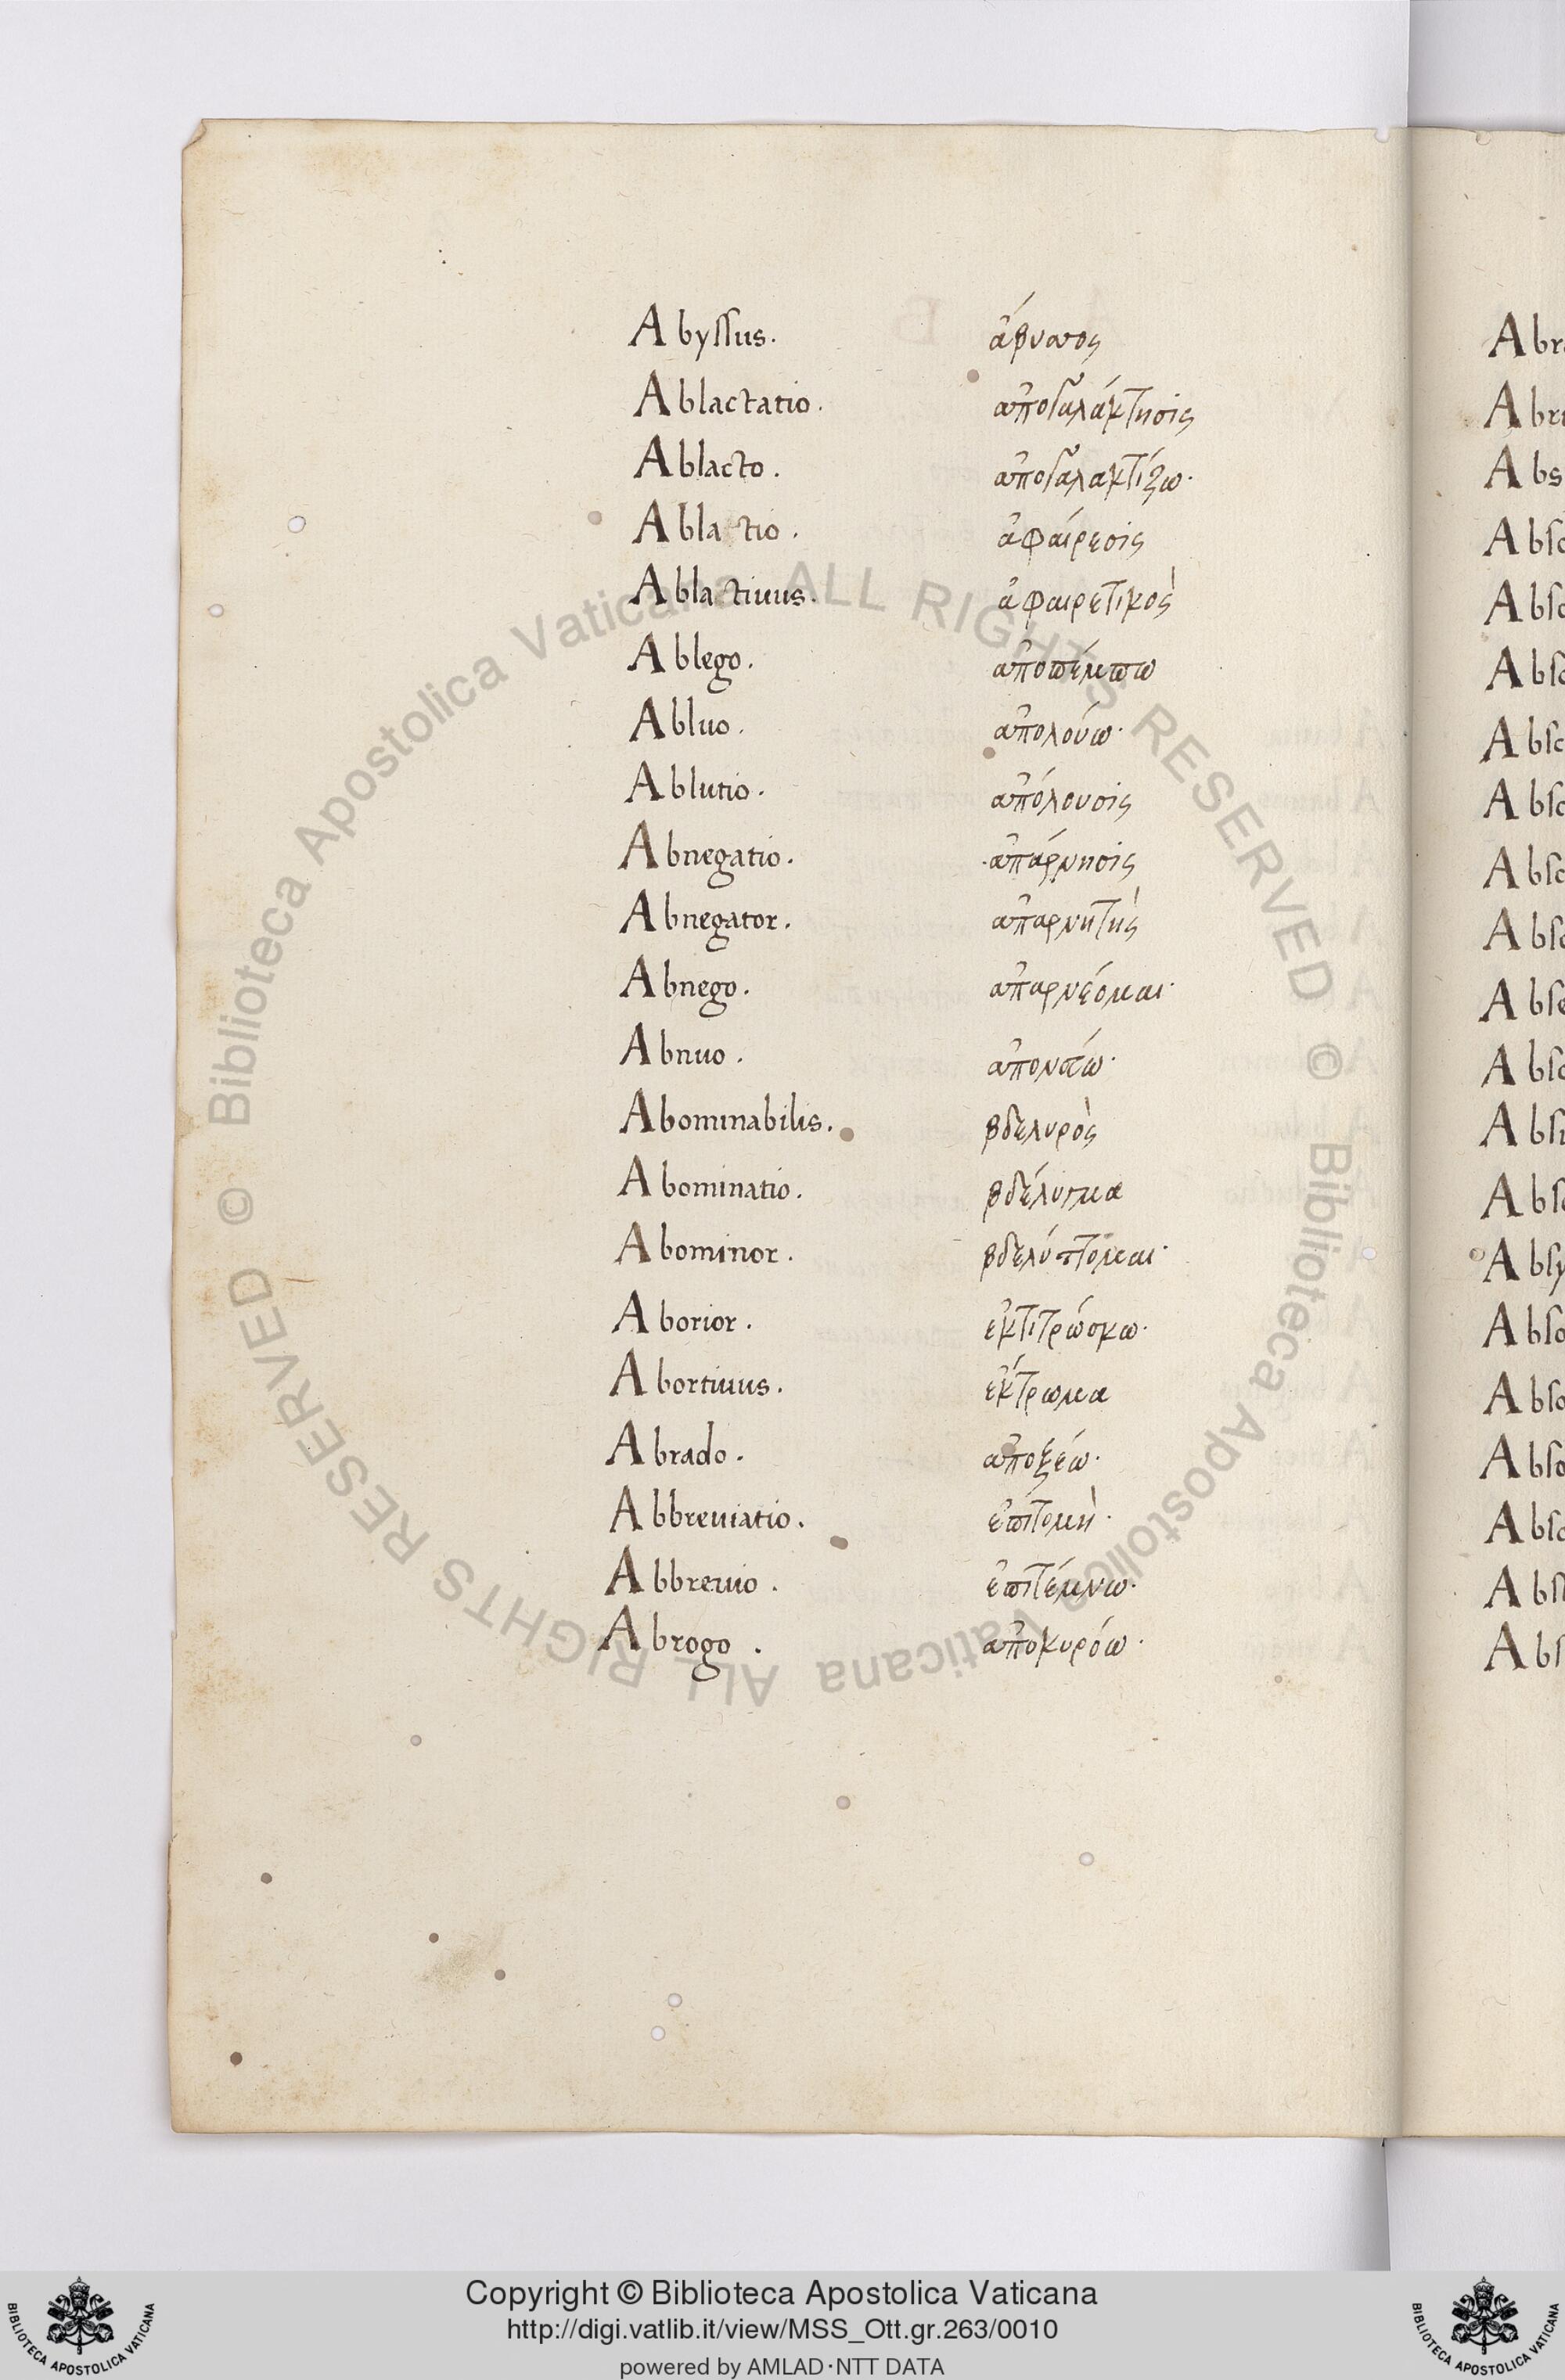 Abyssus. ἄβυσσος
Ablactatio. ἀπογαλάκτησις
Ablacto. ἀπογαλακτίζω·
Ablatio. ἀφαίρεσις
Ablatiuus. ἀφαιρετικὸς
Ablego. ἀποπέμπω
Abluo. ἀπολούω·
Ablutio. ἀπόλουσις
Abnegatio. ·ἀπάρνησις
Abnegator. ἀπαρνητὴς
Abnego. ἀπαρνέομαι·
Abnuo. ἀπονεύω·
Abominabilis. βδελυρὸς
Abominatio. βδέλυγμα
Abominor. βδελύττομαι·
Aborior. ἐκτιτρώσκω·
Abortiuus. ἔκτρωμα
Abrado. ἀποξέω·
Abbreuiatio. ἐπιτομὴ·
Abbreuio. ἐπιτέμνω·
Abrogo. ἀποκυρόω·
© Biblioteca Apostolica Vaticana ALL RIGHTS RESERVED © Biblioteca Apostolica Vaticana ALL RIGHTS RESERVED
Copyright © Biblioteca Apostolica Vaticana
http://digi.vatlib.it/view/MSS_Ott.gr.263/0010
powered by AMLAD·NTT DATA
BIBLIOTECA APOSTOLICA VATICANA
BIBLIOTECA APOSTOLICA VATICANA